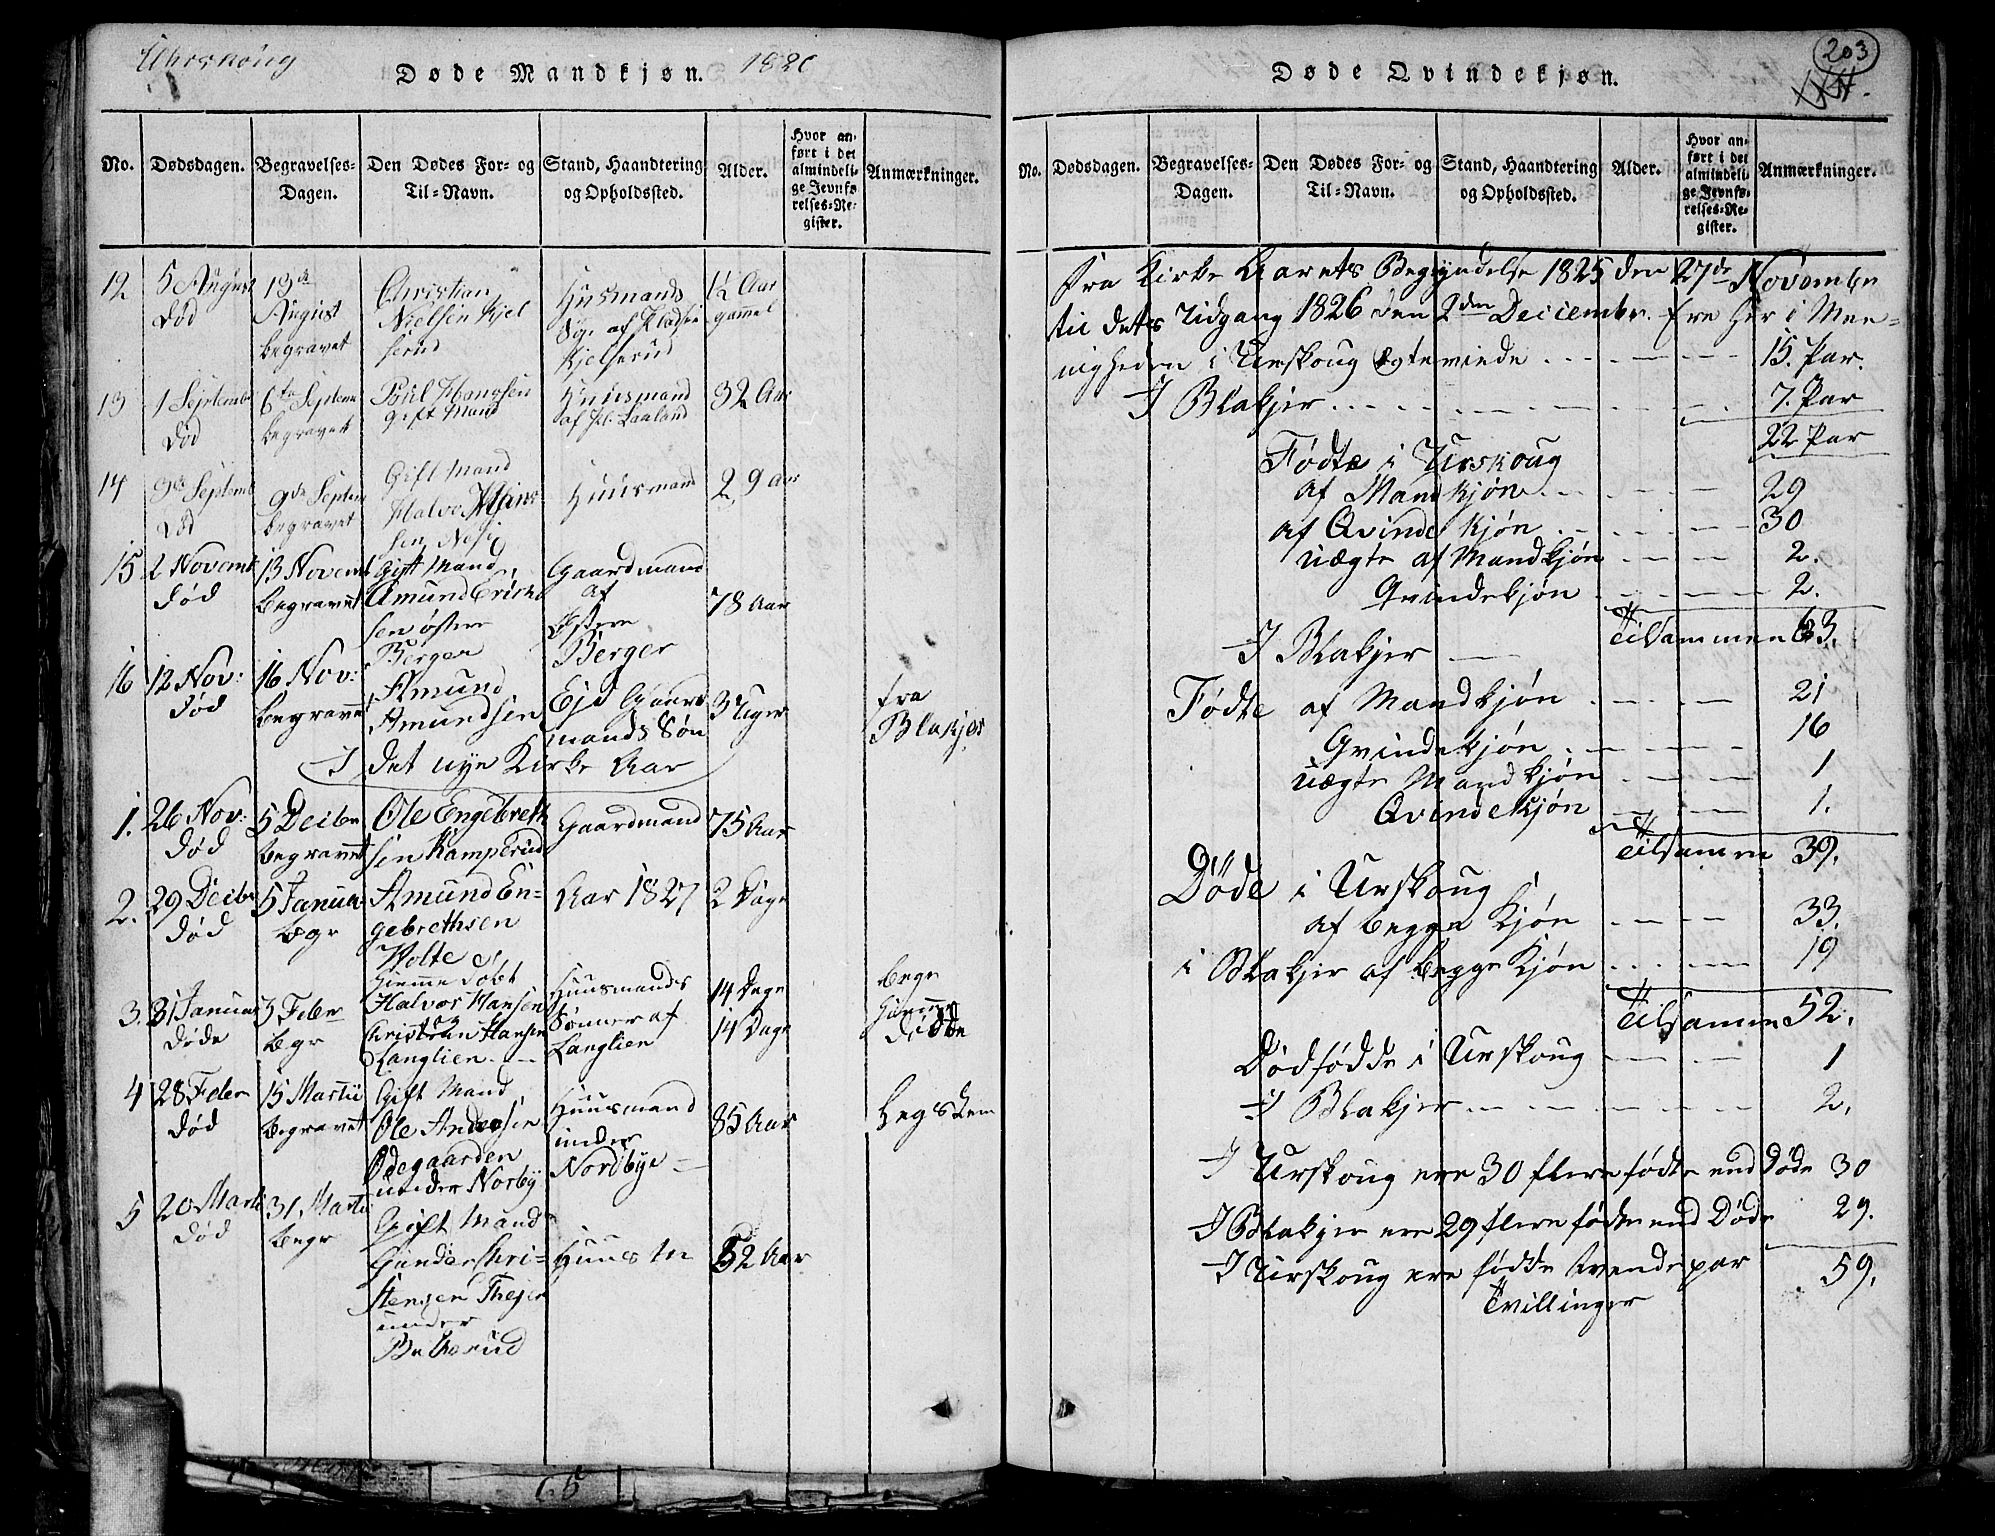 Uhrskoug
Døde Mandkjøn. 1826
No. Dødsdagen. Begravelses-Dagen. Den Dødes For- og Til-Navn. Stand, Haandtering og Opholdssted. Alder. Hvor anført i det almindelige Jevnførelses-Register. Anmærkninger.
12 5 August Død 13de August begravet Christian Nielsen Kjelserud Husmands Søn af Pladsen Kjelserud 1½ Aar gammel
13 1 Septembr Død 6te Septemb begravet Poul Hansen gift Mand Huusmand af Pl. Laaland 32 Aar
14 3de Septemb Død 9de Septem begravet Gift Mand Halvor sen Huusmand 29 Aar
15 2 Novemb død 13 Novemb begravet Gift Mand Amund Erichsen østere Berger Gaardmand af østere Berger 78 Aar
16 12 Nov: død 16 Nov: begravet Amund Amundsen Eje Gaardmands Søn 3 Uger fra Blakjer
I det nye Kirke Aar
1. 26 Nov: død 5 Decbr begravet Ole Engebrethsen Kamperud Gaardmand 75 Aar
2. 29 Decbr død 5 Januar begr Amund Engebrethsen Holte Aar 1827 2 Dage
3. 31 Januar døde 3 Febr begr Hiemme døbt Halvor Hansen Christian Hansen Langlien Huusmandes Sønner af Langlien 14 Dage 14 Dage begr hiemme døbte
4 28 Febr død 15 Martii begravet Gift Mand Ole Andersen Ødegaarden under Norbÿ Huusmand under Nordbye 85 Aar Legslem
5 20 Marti død 31 Marti begr Gift Mand Gunder Christensen Thejer under Huus M 52 Aar
Døde Qvindekjøn.
203
No. Dødsdagen. Begravelses-Dagen. Den Dødes For- og Til-Navn. Stand, Haandtering og Opholdssted. Alder. Hvor anført i det almindelige Jevnførelses-Register. Anmærkninger.
Fra Kirke Aarets Begyndelse 1825 den 27de Novembr
til dets Udgang 1826 den 2den Decembr. Ere her i Mee-
nigheden i Urskoug Egteviede 15. Par.
I Blakjer 7. Par
22 Par
Fødte i Urskoug
af Mandkjøn 29
af Qvindekjøn 30
uægte af Mandkjøn 2.
Qvindekjøn 2.
Tilsammen 63.
I Blakjer
Fødte af Mandkjøn 21
Qvindekjøn 16
uægte Mandkjøn 1
Qvindekjøn 1.
Tilsamm 39.
Døde i Urskoug
af begge Kjøn 33.
i Blakjer af begge Kjøn 19
Tilsamme 52.
Dødfødde i Urskoug 1
I Blakjer 2.
I Urskoug ere 30 flere fødte end Døde 30
I Blakjer ere 29 flere fødte end Døde 29.
I Urskoug ere fødte tvende par 59.
Tvillinger